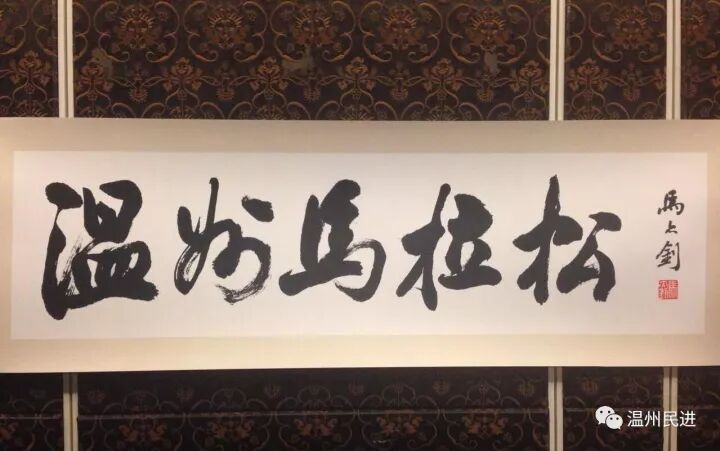 温州馬拉松
馬上釗
温州民进